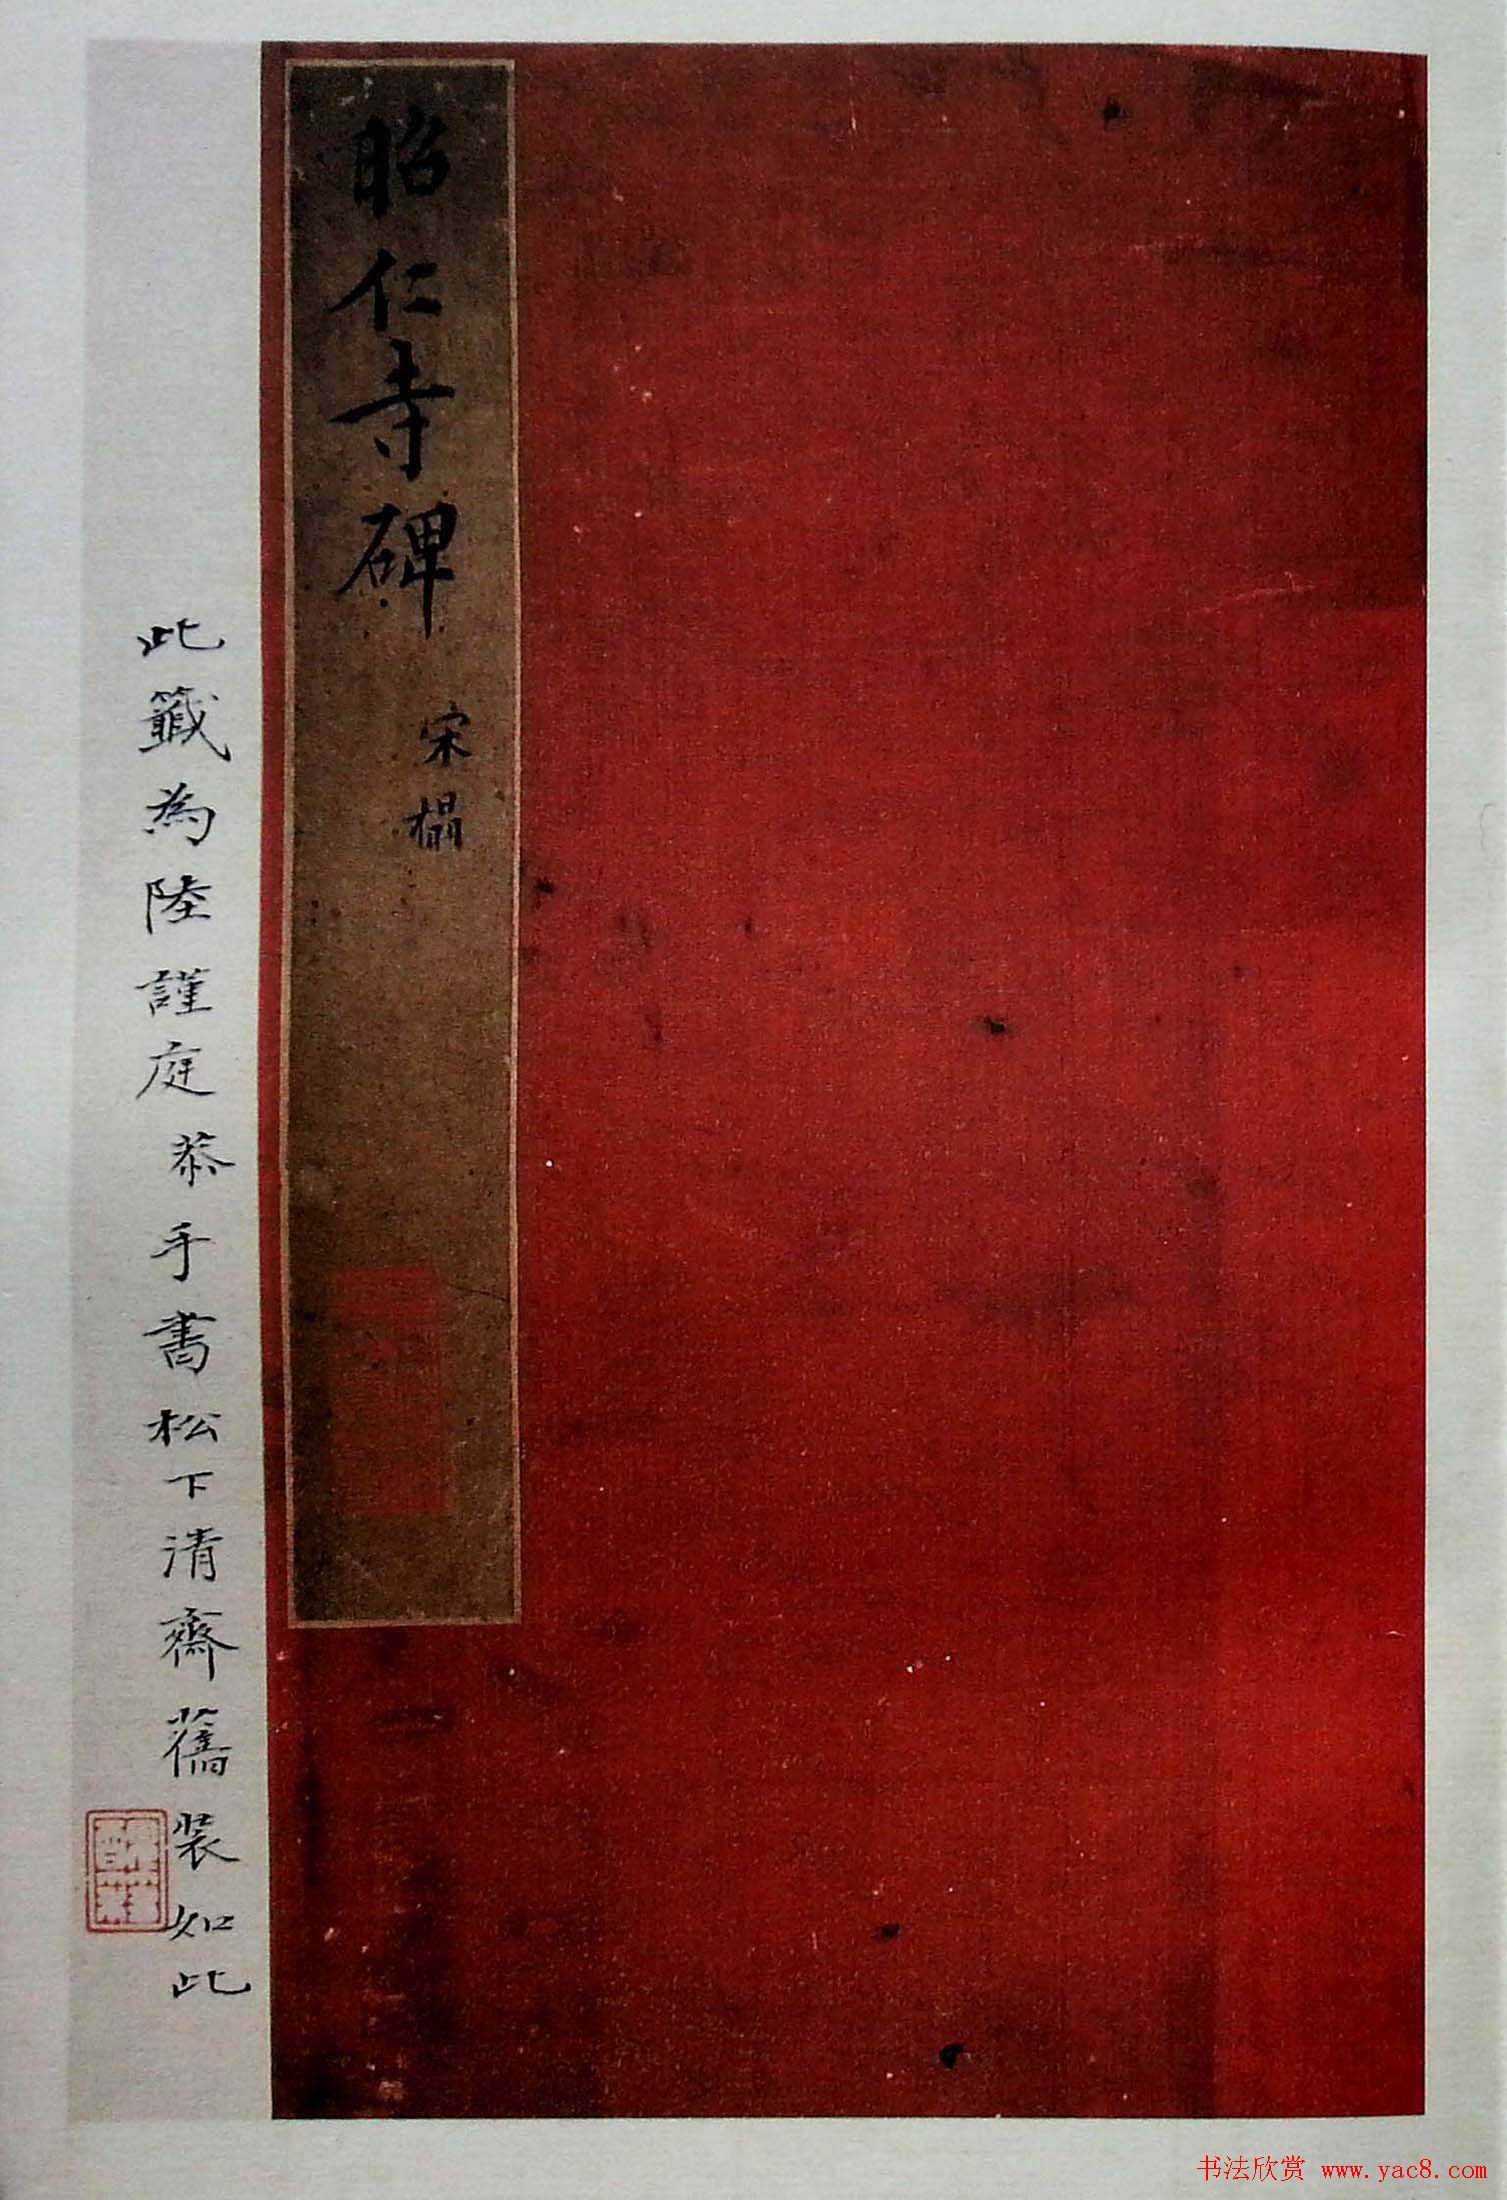 昭仁寺碑
宋榻
此籤為陸謹庭恭手書松下清齋舊裝如此
书法欣赏 www.yac8.com